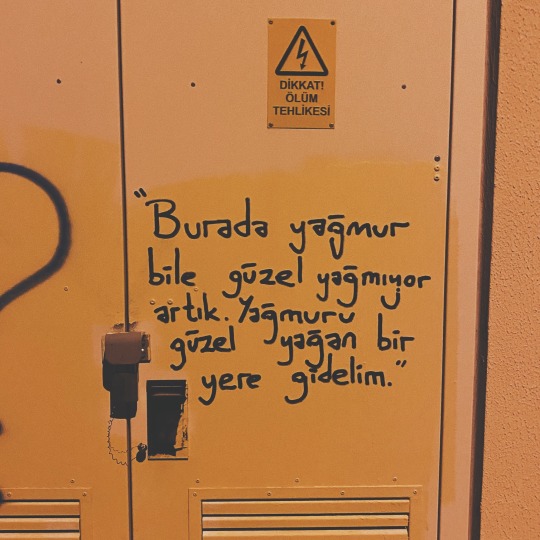 DİKKAT!
ÖLÜM
TEHLİKESİ
"Burada yağmur
bile güzel yağmıyor
artık. Yağmuru
güzel yağan bir
yere gidelim."